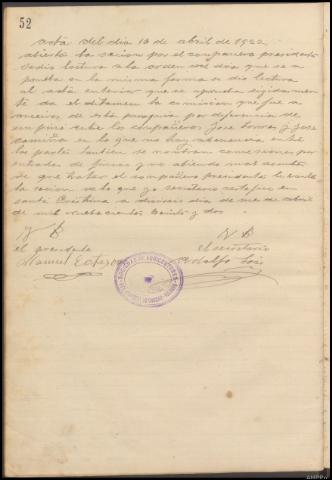 52
acta del dia 16 de abril de 1922
abierta la secion por el compañero presidente
se dio lectura a la orden del dia que se a
prueba en la misma forma se dio lectura
al acta anterior que se aprueba
te da el ditamen la comision que fue a
de esta parroquia por diferencia de
un pino entre los compañeros Jose Torres y Jose
en lo que no hay entre
las partes tanbien se nonbran comisiones por
entradas de fincas y no abiendo mas asuntos
de que tratar el compañero presidente levanta
la secion de lo que yo secretario certifico en
santa Cristina a dieciseis dia de mes de abril
de mil nuebecientos beinte y dos
V B
V B
el presidente
El secretario
Manuel
Adolfo
SOCIEDAD DE AGRICULTORES